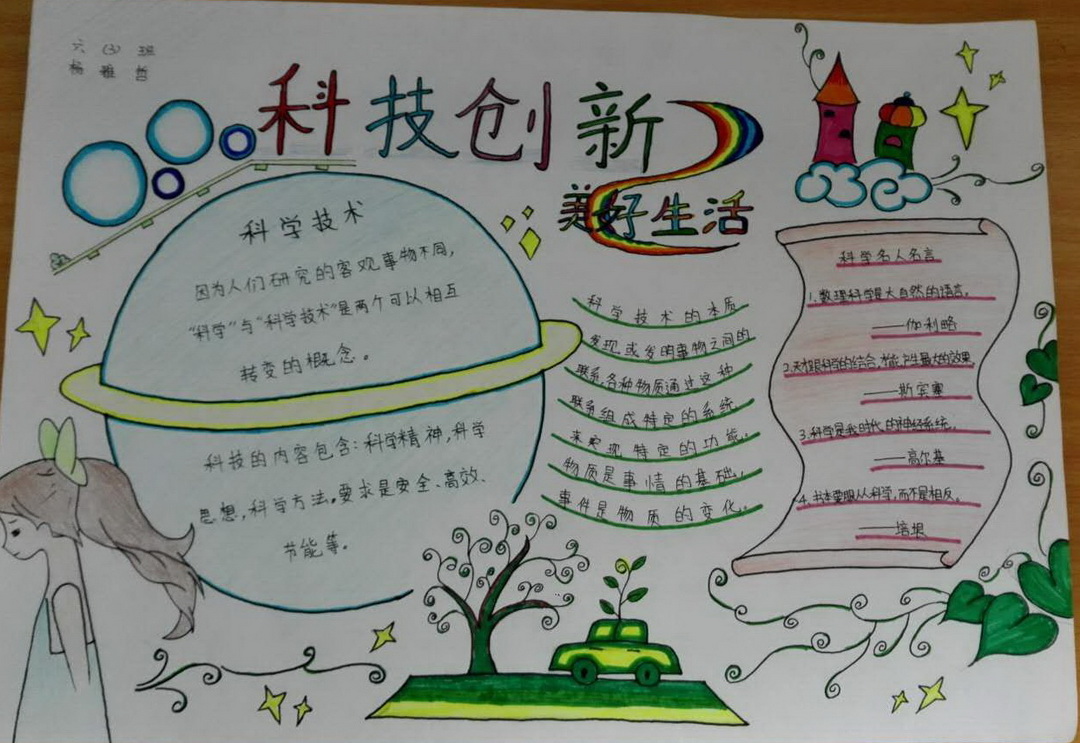 六(3)班
杨雅哲
科技创新
美好生活
科学技术
因为人们研究的客观事物不同,
“科学”与“科学技术”是两个可以相互
转变的概念。
科技的内容包含:科学精神,科学
思想,科学方法。要求是安全、高效、
节能等。
科学技术的本质
发现或发明事物之间的
联系,各种物质通过这种
联系组成特定的系统
来实现特定的功能..
物质是事情的基础..
事件是物质的变化..
科学名人名言
1.数理科学是大自然的语言。
——伽利略
2.天才跟科学的结合,才能产生最大的效果
——斯宾塞
3.科学是我时代的神经系统.
——高尔基
4.书本要服从科学,而不是相反。
——培根